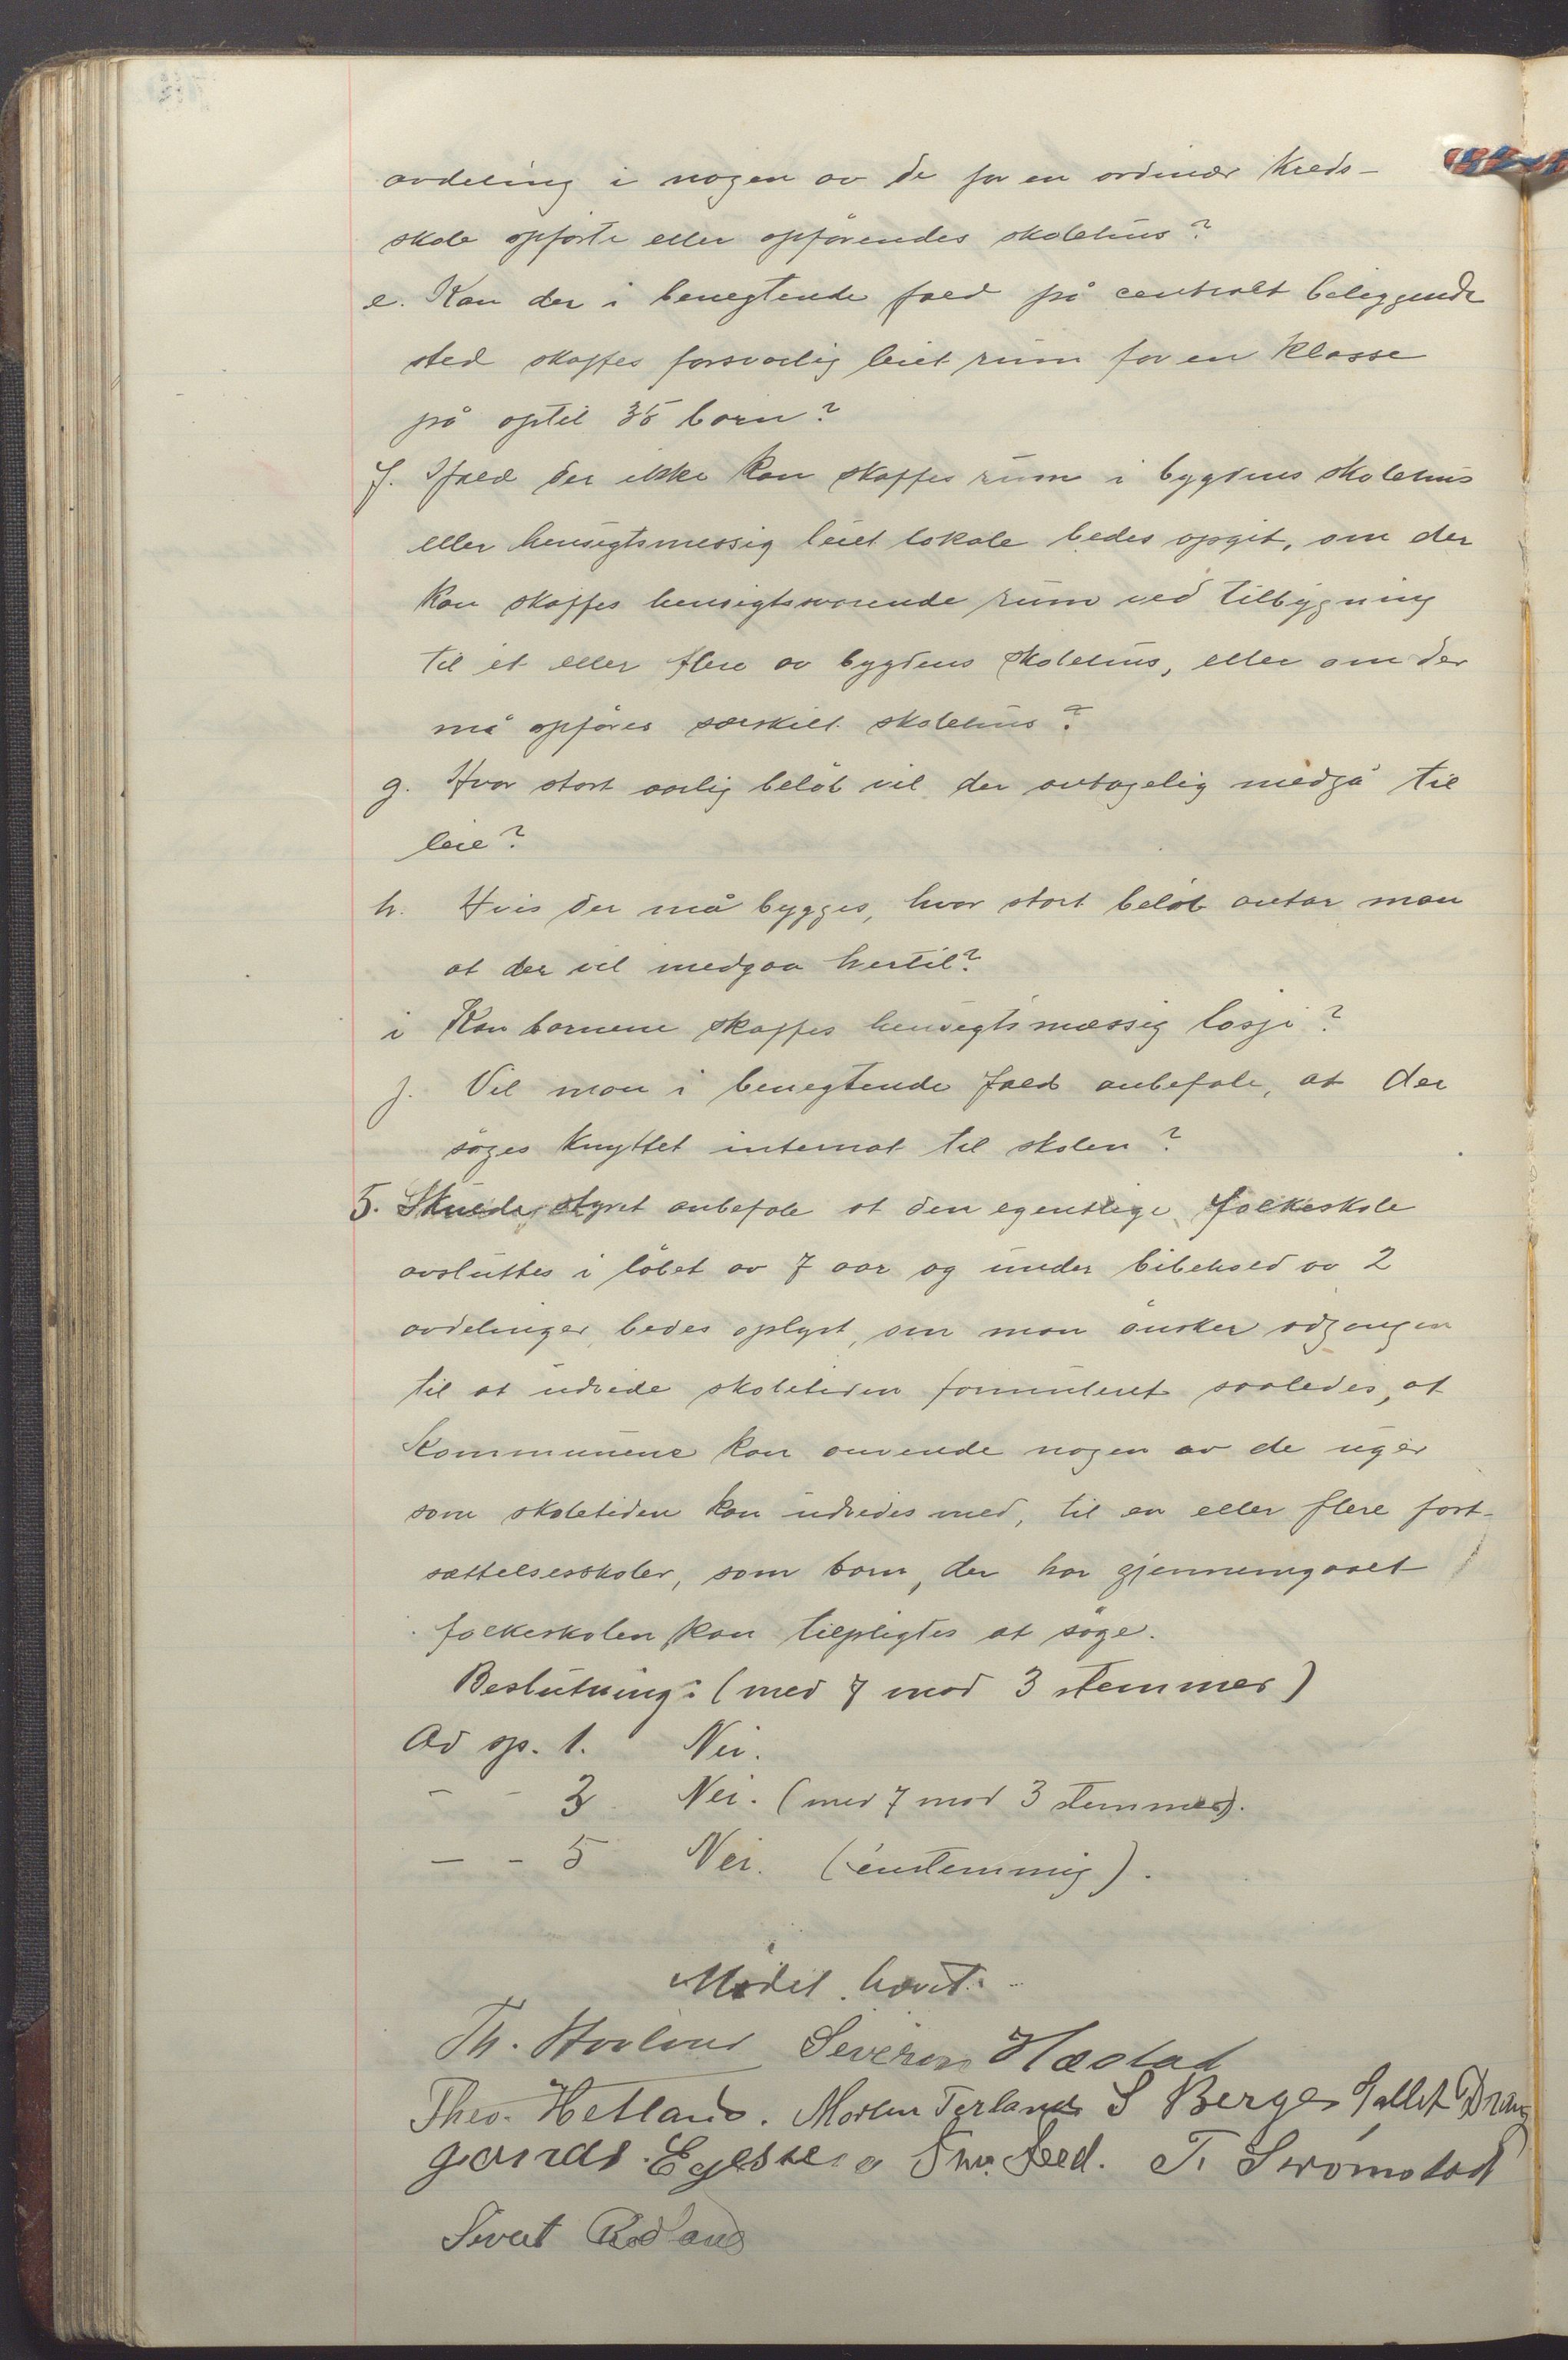 avdeling i nogen av de for en ordinær kreds-
skole opførte eller opførendes skolehus?
e. Kan der i benegtende fald på centralt beliggende
sted skaffes forsvarlig leiet rum for en klasse
på optil 35 børn?
f. Ifald der ikke kan skaffes rum i bygdens skolehus
eller hensigtsmessig leiet lokale bedes opgit, om der
kan skaffes hensigtssvarende rum ved tilbygning
til et eller flere av bygdens skolehus, eller om der
må opføres særskilt skolehus?
g. Hvor stort aarlig beløb vil der antagelig medgå til
leie?
h. Hvis der må bygges, hvor stort beløb antar man
at der vil medgaa hertil?
i Kan børnene skaffes hensigtsmæssig losji?
j. Vil man i benegtende fald anbefale, at der
søges knyttet internat til skolen?
5. styret anbefale at den egentlige folkeskole
avsluttes i løbet av 7 aar og under bibehold av 2
avdelinger, bedes oplyst, om man ønsker adgangen
til at utvide skoletiden formuleret saaledes, at
kommunene kan anvende nogen av de uger
som skoletiden kan utvides med, til en eller flere fort-
sættelsesskoler, som børn, der har gjennemgaaet
folkeskolen kan tilpligtes at søge.
Beslutning: (med 7 mod 3 stemmer)
Ad sp. 1. Nei.
- - 3 Nei. (med 7 mod 3 stemmer).
- - 5 Nei. (enstemmig).
Mødet hævet.
Th. Severin Hæstad
Theo. Hetland. Morten Tærland S Berge Sallet Drang
Egessen T. Strömstad
Sivert Rødland